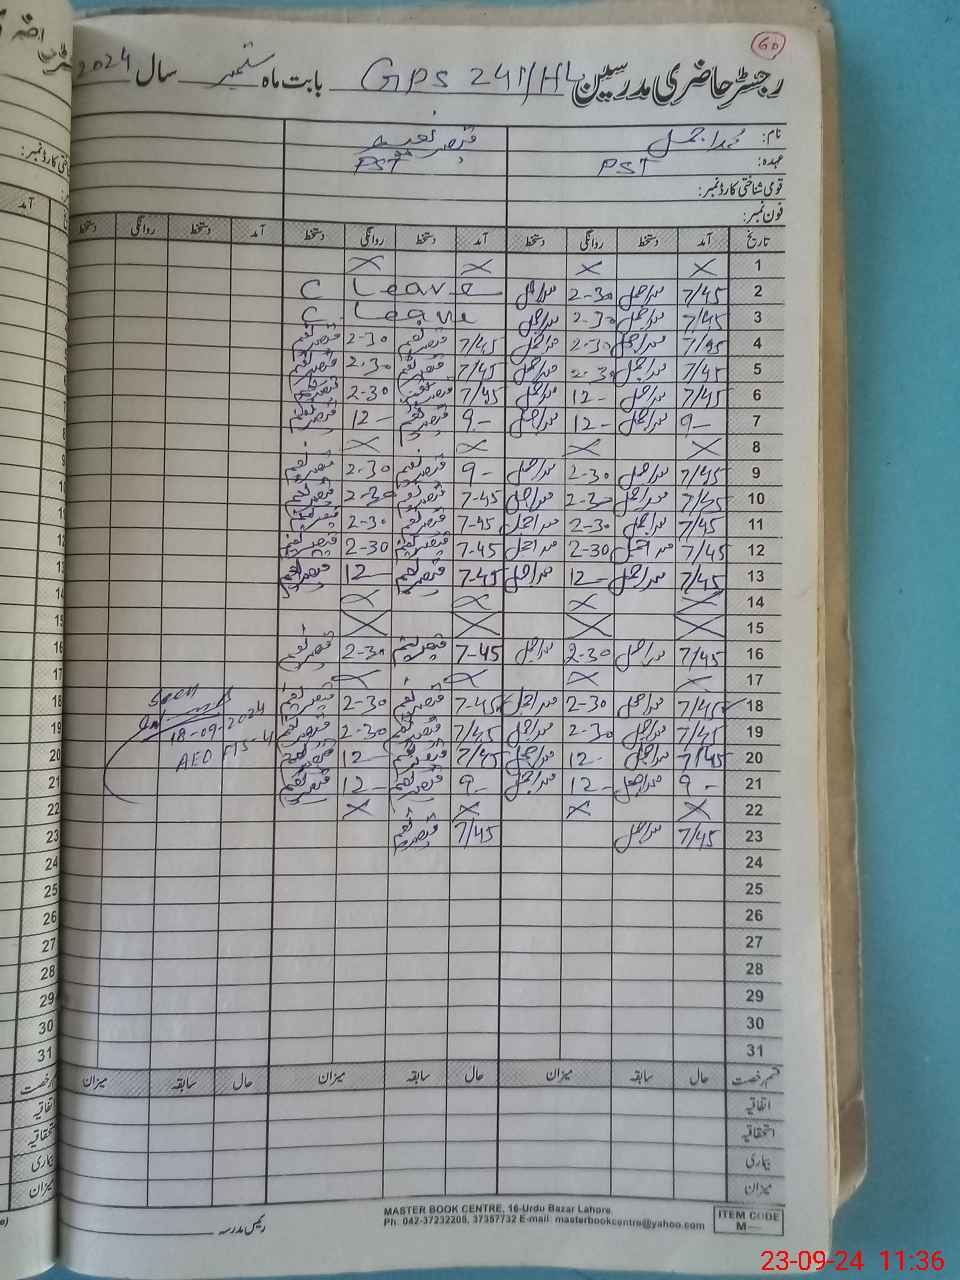 60
رجسٹر حاضری مدرسین GPS 241/HL بابت ماہ ستمبر سال 2024
نام: محمد اجمل قیصر نعیم
عہدہ: PST PST
قومی شناختی کارڈ نمبر:
فون نمبر:
تاریخ آمد دستخط روانگی دستخط آمد دستخط روانگی دستخط آمد دستخط روانگی دستخط
1 X X X X
2 7/45 محمد اجمل 2-30 محمد اجمل C Leave
3 7/45 محمد اجمل 2-30 محمد اجمل C Leave
4 7/45 محمد اجمل 2-30 محمد اجمل 7/45 قیصر نعیم 2-30 قیصر نعیم
5 7/45 محمد اجمل 2-30 محمد اجمل 7/45 قیصر نعیم 2-30 قیصر نعیم
6 7/45 محمد اجمل 12- محمد اجمل 7/45 قیصر نعیم 2-30 قیصر نعیم
7 9- محمد اجمل 12- محمد اجمل 9- قیصر نعیم 12- قیصر نعیم
8 X X X X
9 7/45 محمد اجمل 2-30 محمد اجمل 9- قیصر نعیم 2-30 قیصر نعیم
10 7/45 محمد اجمل 2-30 محمد اجمل 7-45 قیصر نعیم 2-30 قیصر نعیم
11 7/45 محمد اجمل 2-30 محمد اجمل 7-45 قیصر نعیم 2-30 قیصر نعیم
12 7/45 محمد اجمل 2-30 محمد اجمل 7-45 قیصر نعیم 2-30 قیصر نعیم
13 7/45 محمد اجمل 12- محمد اجمل 7-45 قیصر نعیم 12 قیصر نعیم
14 X X X X
15 X X X X
16 7/45 محمد اجمل 2-30 محمد اجمل 7-45 قیصر نعیم 2-30 قیصر نعیم
17 X X X X
18 7/45 محمد اجمل 2-30 محمد اجمل 7-45 قیصر نعیم 2-30 قیصر نعیم
19 7/45 محمد اجمل 2-30 محمد اجمل 7/45 قیصر نعیم 2-30 قیصر نعیم
20 7/45 محمد اجمل 12- محمد اجمل 7/45 قیصر نعیم 12- قیصر نعیم
21 9- محمد اجمل 12- محمد اجمل 9- قیصر نعیم 12- قیصر نعیم
22 X X X X
23 7/45 محمد اجمل 7/45 قیصر نعیم
Seen
18-09-2024
AEO
24
25
26
27
28
29
30
31
قسم رخصت حال سابقہ میزان حال سابقہ میزان حال سابقہ میزان
اتفاقیہ
استحقاقیہ
بیماری
میزان
رئیس مدرسہ
MASTER BOOK CENTRE, 16-Urdu Bazar Lahore.
Ph: 042-37232208, 37357732 E-mail: masterbookcentre@yahoo.com
ITEM CODE
M—
23-09-24 11:36